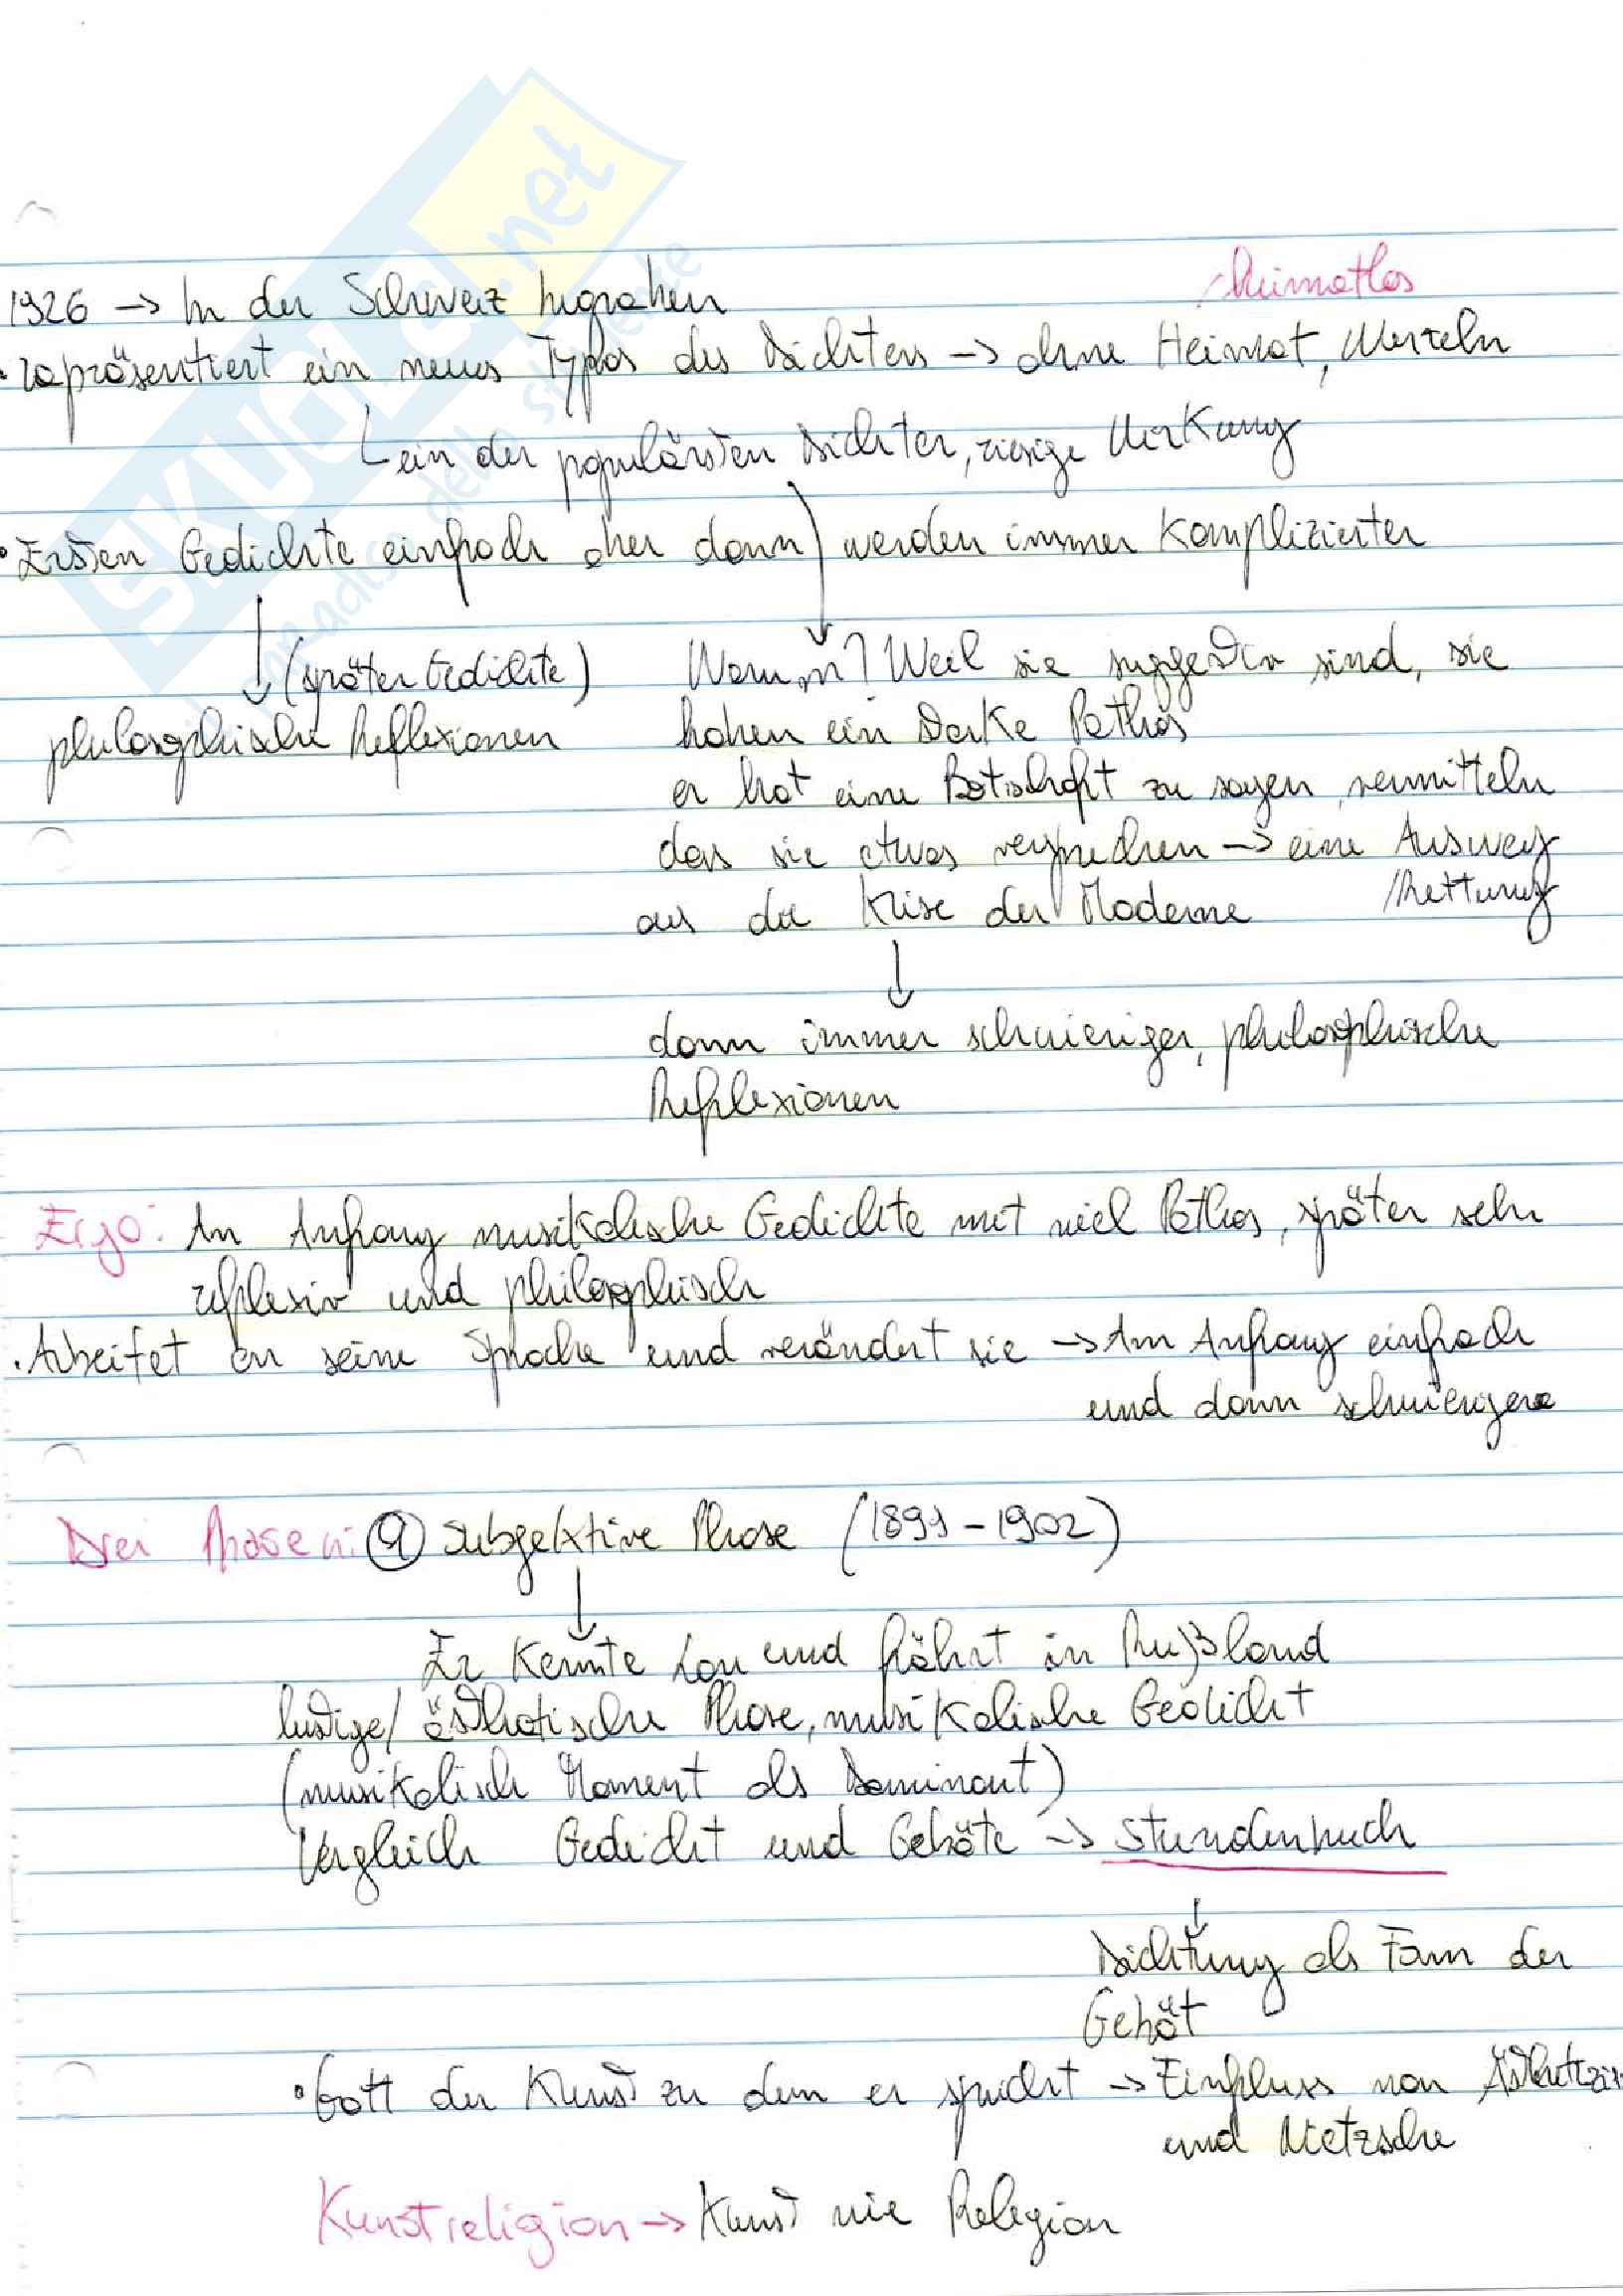 SKUOLA.net
il paradiso dello studente
/heimatlos
1926 -> In der Schweiz begraben
• repräsentiert ein neues Typos des Dichters -> ohne Heimat, Wurzeln
ein der populärsten Dichter, riesige Wirkung
• Ersten Gedichte einfach aber dann werden immer Komplizierter
(später Gedichte)
philosophische Reflexionen
Warum? Weil sie suggestiv sind, sie
haben ein starke Pathos
er hat eine Botschaft zu sagen, vermitteln
das sie etwas versprechen -> eine Ausweg
aus die Krise der Moderne /Rettung
dann immer schwieriger, philosophische
Reflexionen
Ergo: Am Anfang musikalische Gedichte mit viel Pathos, später sehr
reflexiv und philosophisch
• Arbeitet an seine Sprache und verändert sie -> Am Anfang einfach
und dann schwieriger
Drei Phasen: a) Subjektive Phase (1899-1902)
Er Kennte Lou und fährt in Rußland
lustige/ästhetische Phase, musikalische Gedicht
(musikalisch Moment als Dominant)
Vergleich Gedicht und Gebäte -> Stundenbuch
Dichtung als Form der
Gebät
• Gott der Kunst zu dem er spricht -> Einfluss von
und Nietzsche
Kunstreligion -> Kunst wie Religion